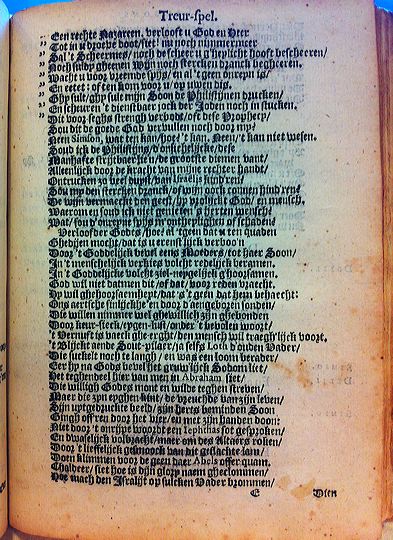 Treur-spel.
„ Een rechte Nazareen. verlooft u God en Heer
„ Tot in u droeve doot/siet: nu noch nimmermeer
„ Sal 't Scheermes/ noch de scheer u g'heylicht hooft bescheeren/
„ Noch suldy ghienen Wijn noch stercken dranck begheeren.
„ Wacht u voor vreemde spijs/ en al 't geen onreyn is/
„ En eetet: of ten kom voor u/ op uwen dis.
„ Ghy sult/ ghy sult mijn Soon de Philistijnen drucken/
„ En scheuren 't dienstbaer jock der Joden noch in stucken.
Dit voor seghs strengh verbode/ost dese Propheey/
Sou dit de goede God vervullen noch door my?
Neen Simson, wat ten kan/hoe 't kan. Neen/'t kan niet wesen.
Soud ick de Philistijns/ d'onkehelijcke/dese
Manhafte strijtbaer he'n/de grootste diemen vant/
Alleenlijck door de kracht van mijne rechte handt/
Ontrucken zo veel duyst/van Israëls kind'ren?
Sou my den stercken dranck/of wijn noch connen hind'ren?
De wijn vermaeckt den geest/hy vrolijckt God/ en mensch.
Waerom en soud ick niet genieten 's herten wensch?
Wat/ sou d'onreyne spijs in ontheylighen of schaden?
Verloof der Godes/hoe! al 'tgeen dat u ten quaden
Ghedijen mocht/dat is u ernstlijck verboo'n.
Door 't Goddelijck bevel eens Moeders/ tot haer Soon/
In 't menschelijck verkies volcht redelijck beramen.
In 't Goddelijcke volcht ziel-neygelijck g'hoorsamen.
God wil niet datmen dit/of dat/ voor reden vracht.
Hy wil ghehoorsaemheyt/dat 's 't geen dat hem behaecht:
Ons aertsche sinlijckhe'en door d'aengeboren sonden/
Die willen nimmer wel ghewillich zijn ghebonden
Door keur-sieck/eygen-lust/onder 't bevolen woort/
't Vernuft is vaeck ghe-erght/den mensch wil traegh'lijck voort.
't Blijckt aende Sout-pilaer/ja selfs Loth d'ouden Vader/
Die suckelt noch te langh / en was een loom verader/
Eer hy na Gods bevel het gruwlijck Sodom liet/
Het teghendeel hier van men in Abraham siet/
Die willigh Godes mont en wilde teghen streven/
Maer die zijn eyghen kint/ de vreuchde van zijn leven/
Zijn uytgedruckte beeld/ zijn herts beminden Soon
Gingh off'ren door het vier/ en met zijn handen doon:
Niet door 't onrijpe woordt een Iephthas tot gesproken/
En dwaselijck volbracht/ maer om des Altaers rolien/
Door 't lieffelijck gesmoock van dit geslachte lam/
Doen klimmen voor de geen daer Abels offer quam.
Chaldeer/ siet hoe is dijn glory naem gheclommen/
Hoe mach den Israelijt op sulcken Vader brommen/
E Dien